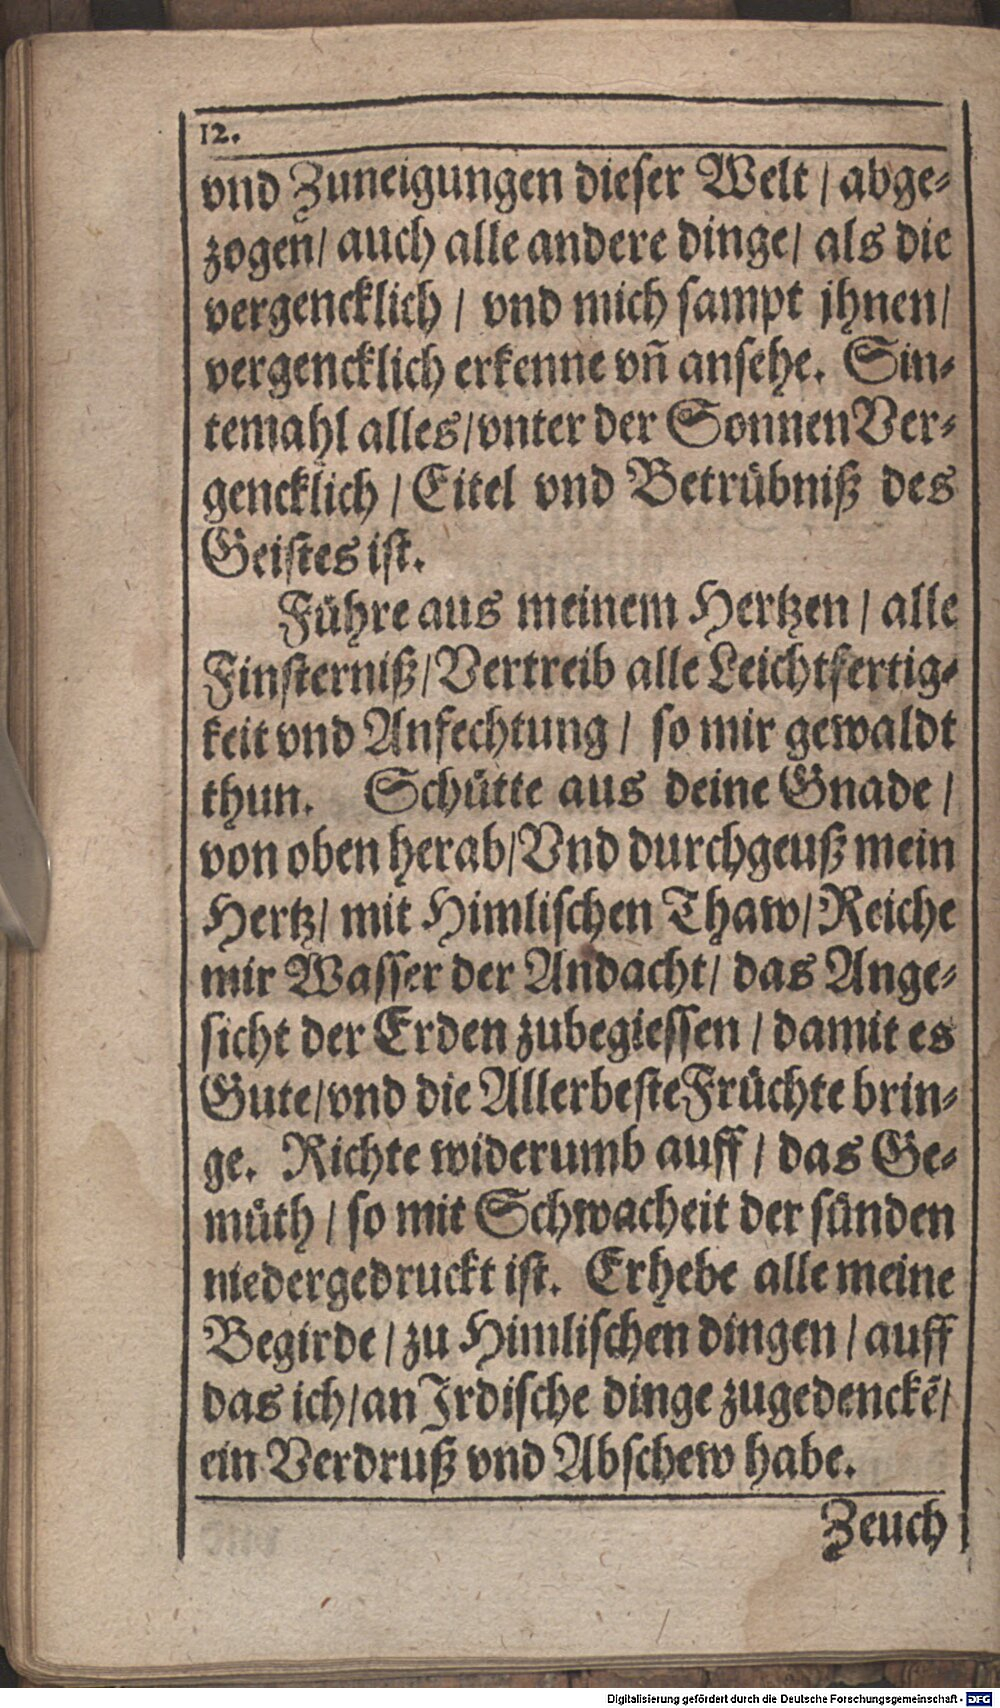 12.
vnd Zuneigungen dieser Welt / abge-
zogen / auch alle andere dinge / als die
vergencklich / vnd mich sampt jhnen /
vergencklich erkenne vñ ansehe. Sin-
temahl alles / vnter der Sonnen Ver-
gencklich / Eitel vnd Betrübniß des
Geistes ist.
Führe aus meinem Hertzen / alle
Finsterniß / Vertreib alle Leichtfertig-
keit vnd Anfechtung / so mir gewaldt
thun. Schütte aus deine Gnade /
von oben herab / Vnd durchgeuß mein
Hertz / mit Himlischen Thaw / Reiche
mir Wasser der Andacht / das Ange-
sicht der Erden zubegiessen / damit es
Gute / vnd die Allerbeste Früchte brin-
ge. Richte widerumb auff / das Ge-
müth / so mit Schwacheit der sünden
niedergedruckt ist. Erhebe alle meine
Begirde / zu Himlischen dingen / auff
das ich / an Irdische dinge zugedenckẽ /
ein Verdruß vnd Abschew habe.
Zeuch
Digitalisierung gefördert durch die Deutsche Forschungsgemeinschaft - DFG